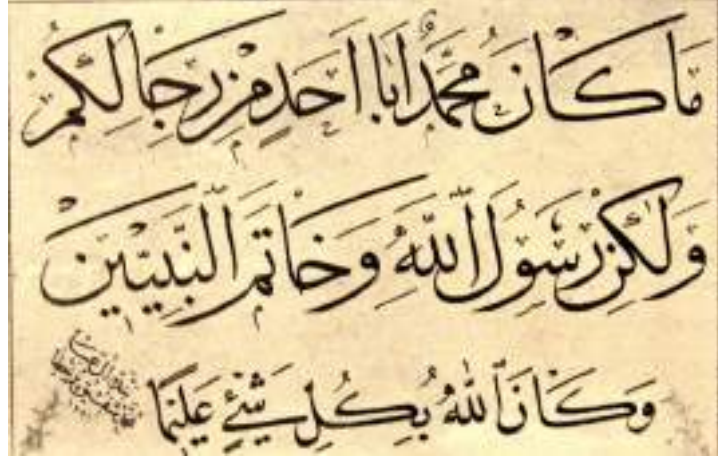 مَا كَانَ مُحَمَّدٌ أَبَا أَحَدٍ مِنْ رِجَالِكُمْ
وَلَٰكِنْ رَسُولَ اللَّهِ وَخَاتَمَ النَّبِيِّينَ
وَكَانَ اللَّهُ بِكُلِّ شَيْءٍ عَلِيمًا